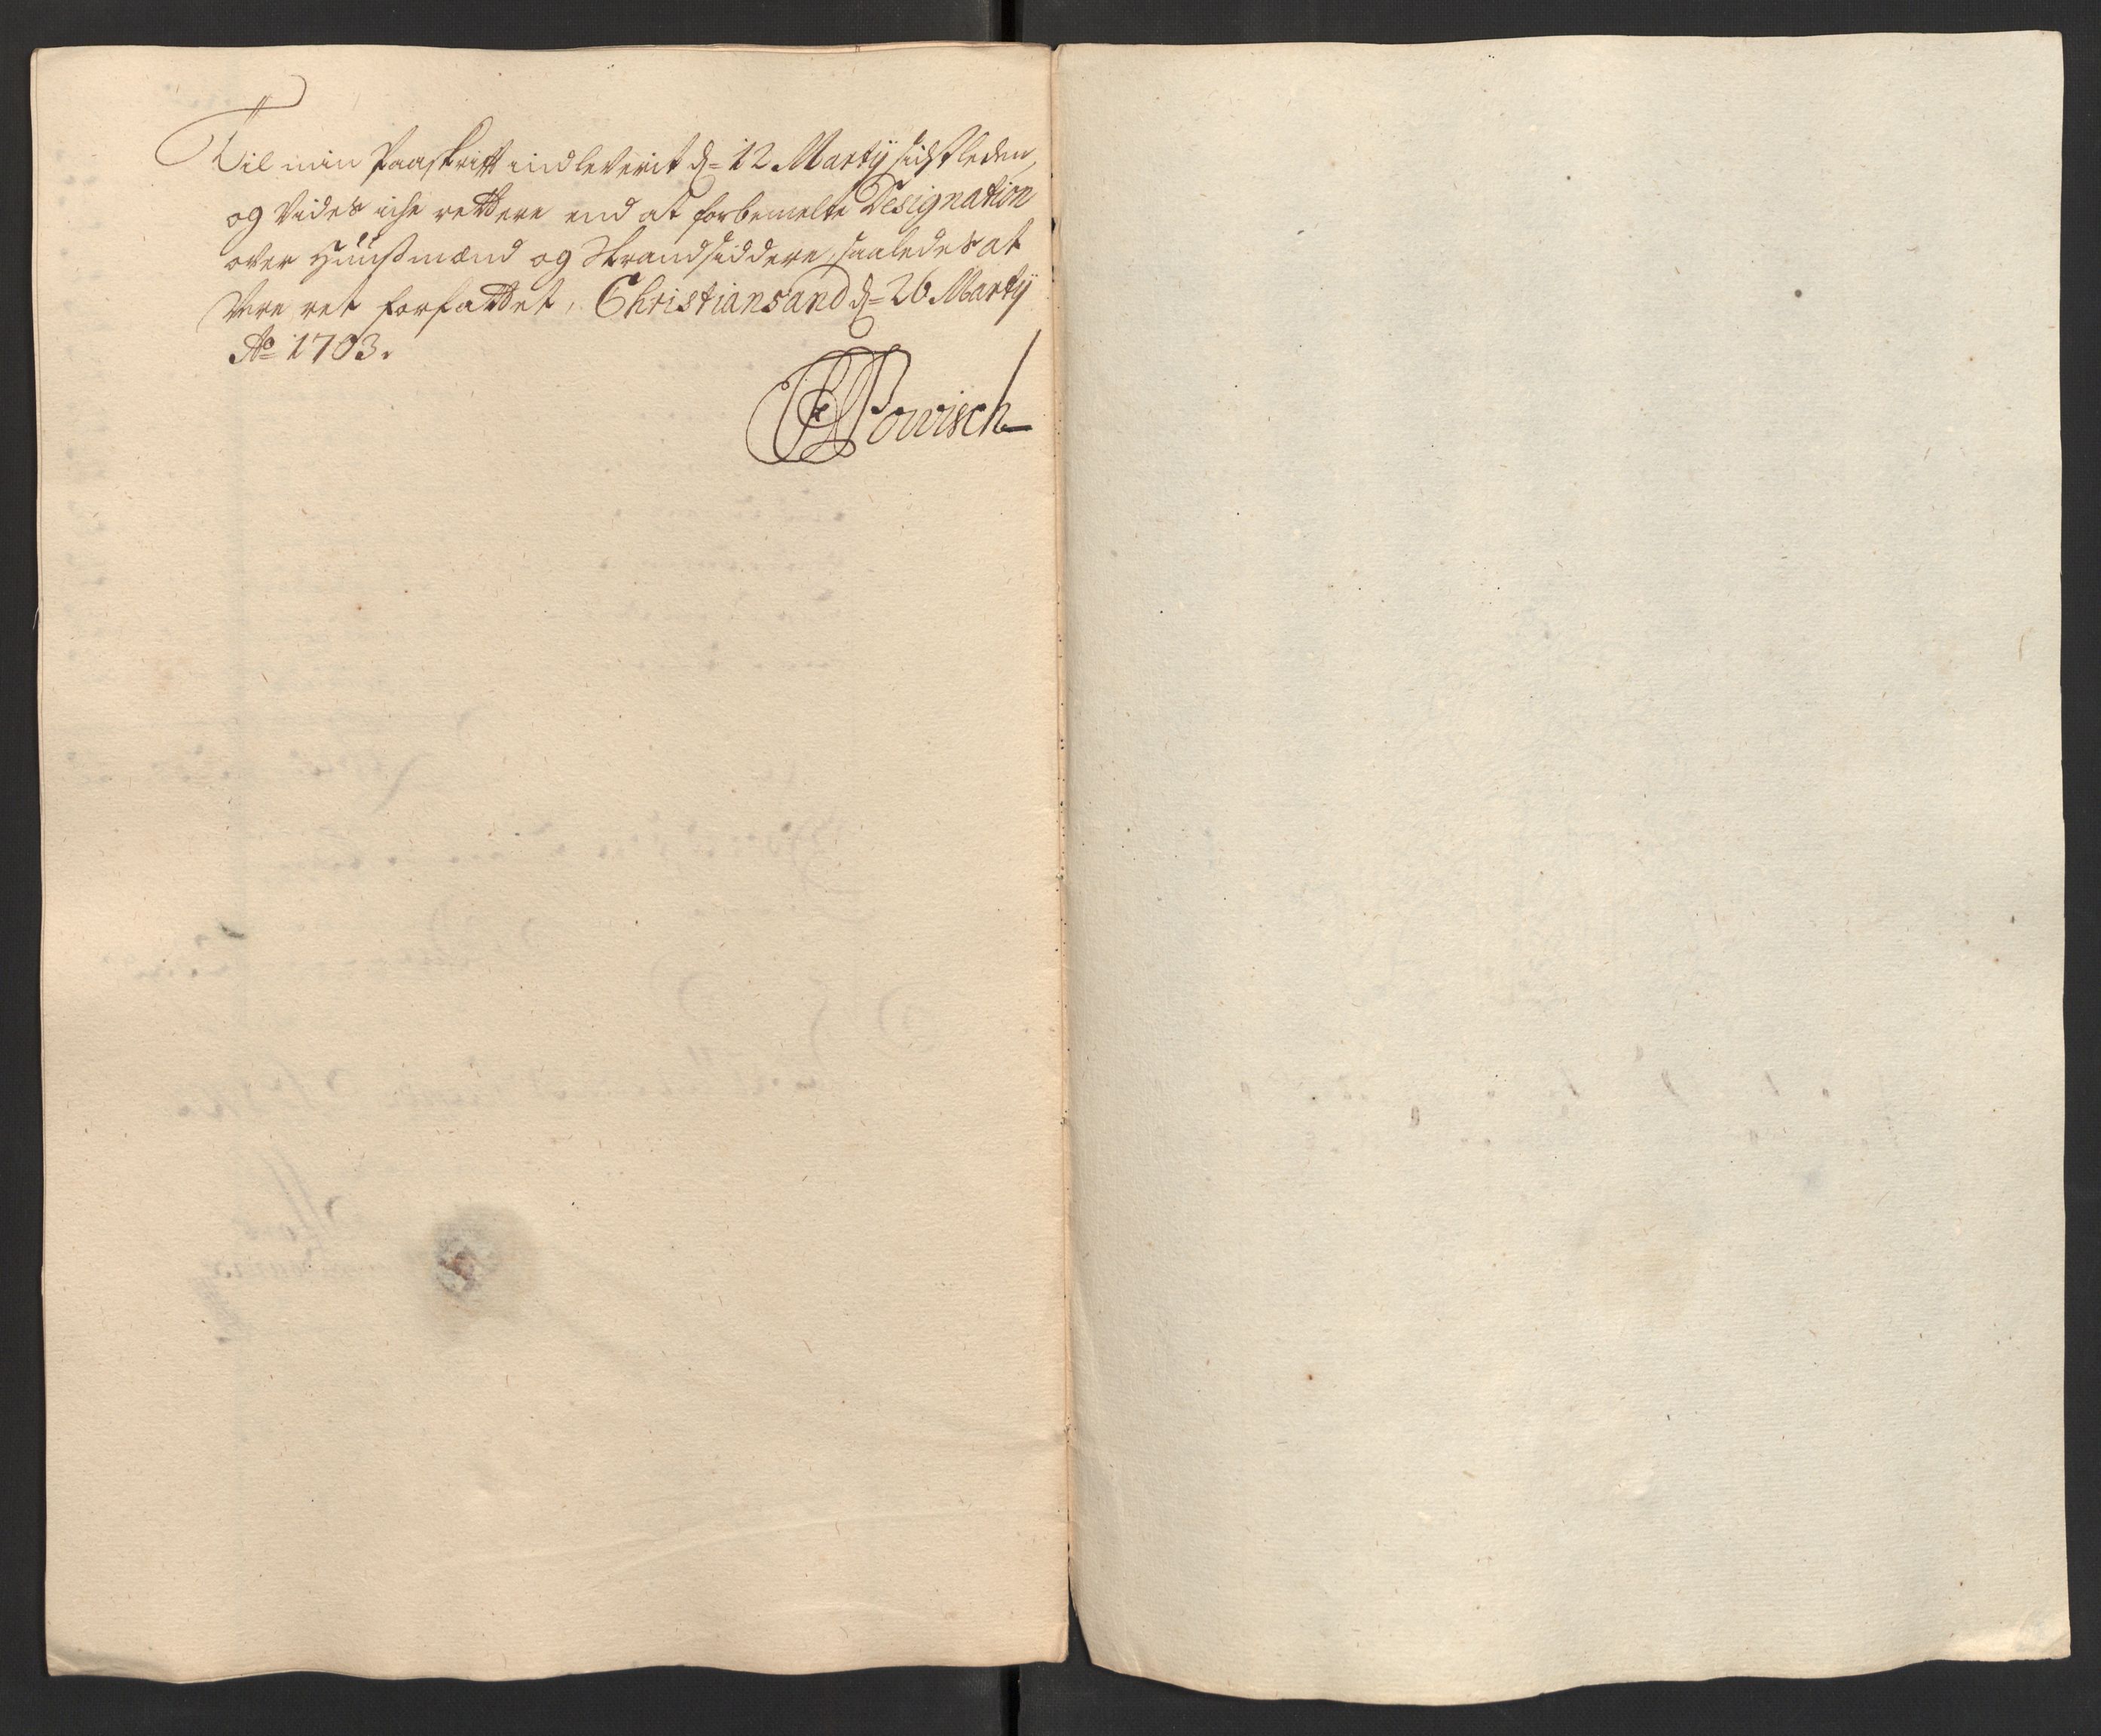 Til min Paaskrifft indleverit d= 12 Martÿ sidstleden,
og Vides iche rettere end at forbemelte Designation
over Huußmænd og Strandsiddere, saaledes at
Vere ret forfattet, Christiansand d= 26 Martÿ
Ao 1703.
Powisch